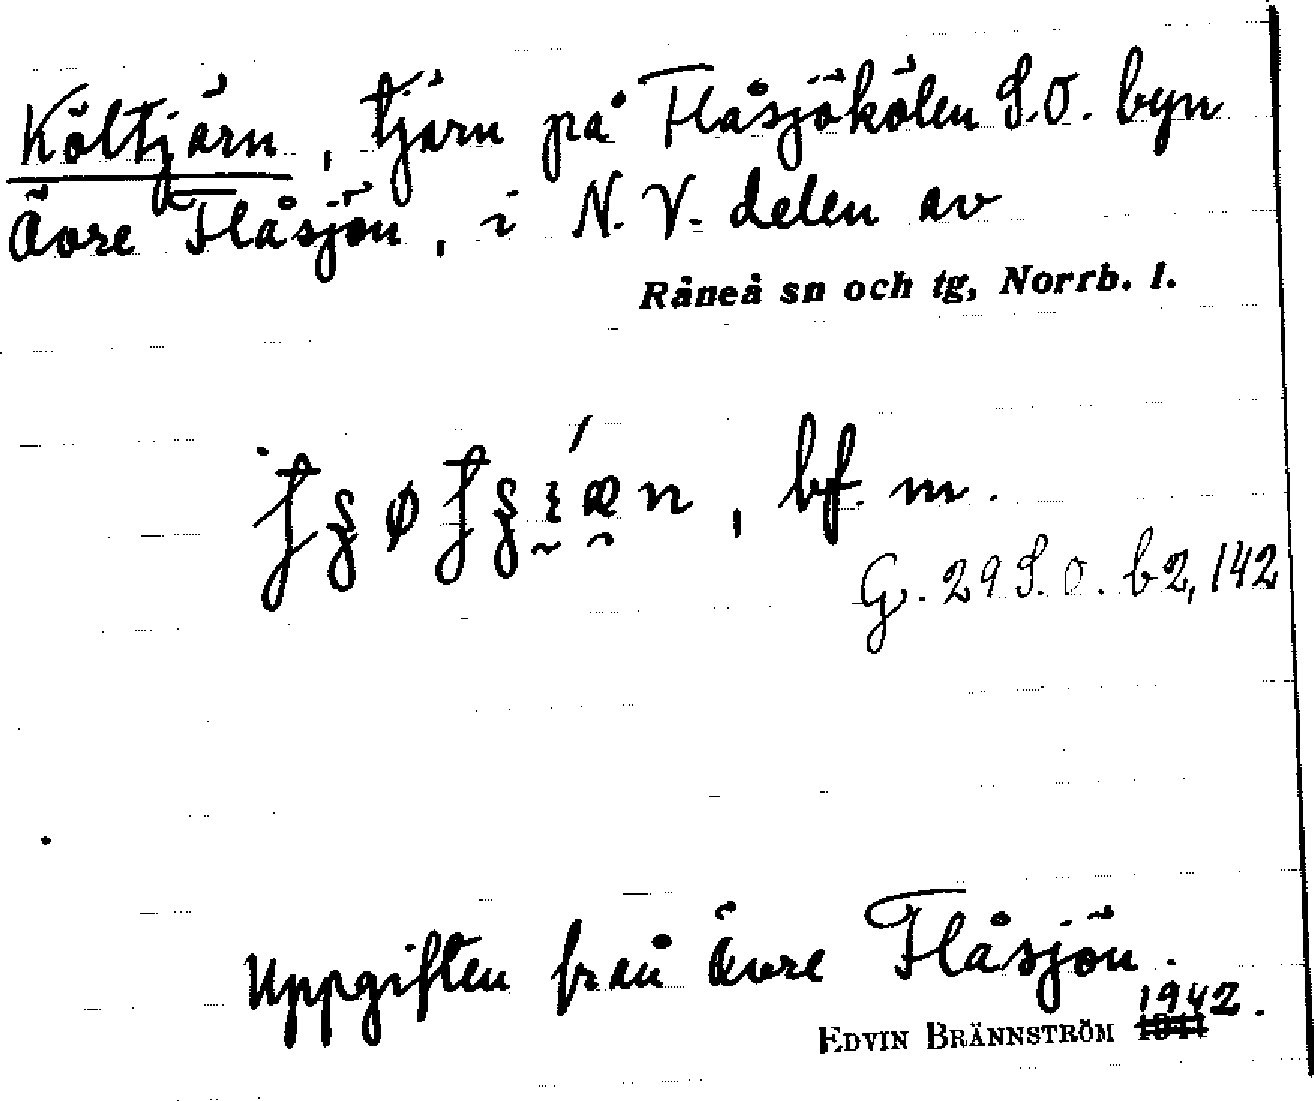 Költjärn, tjärn på Flåsjökölen S.O. byn
Övre Flåsjön, i N.V. delen av
Råneå sn och tg, Norrb. l.
, bf. m.
G. 29 S.O. b2, 142
Uppgiften från övre Flåsjön.
1942.
EDVIN BRÄNNSTRÖM 1941